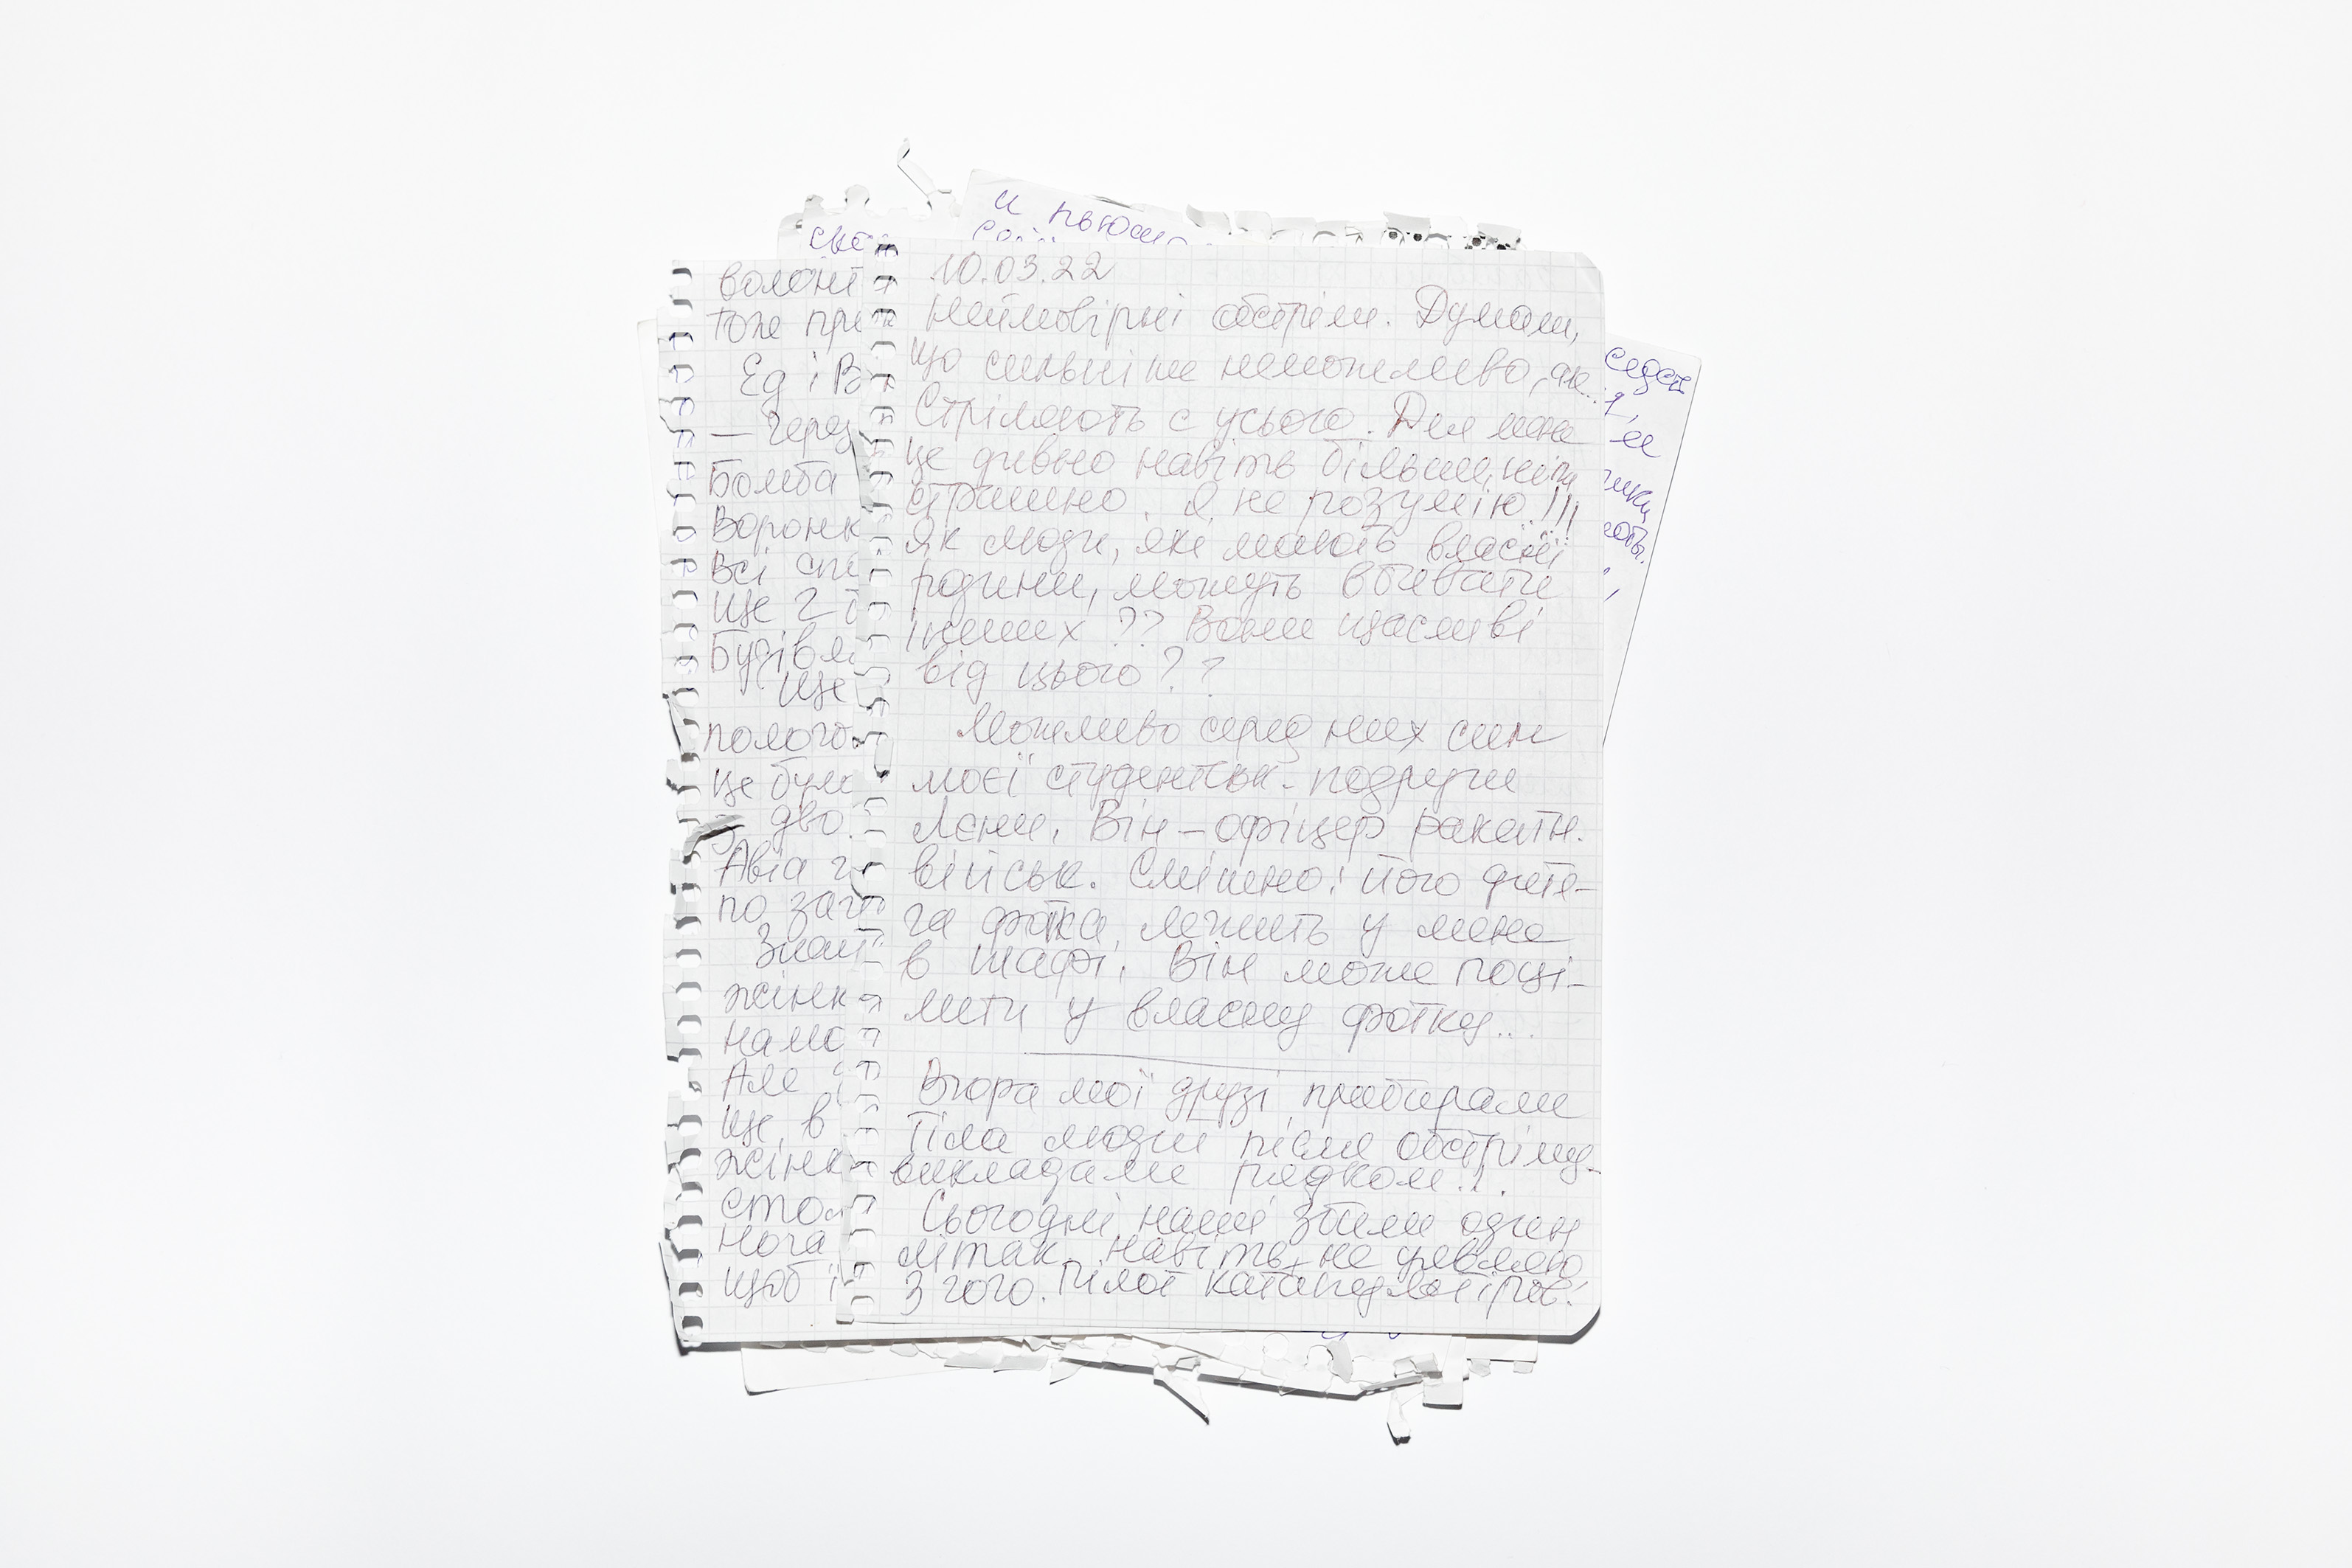 и пьюща
ска
10.03.22
Неймовірні обстріли. Думали,
що сильніше неможливо, але...
Стріляють с усього. Для мене
це дивно навіть більше, ніж
страшно. Я не розумію!!!
Як люди, які мають власні
родини, можуть вбивати
інших?? Вони щасливі
від цього??
Можливо серед них син
моєї студентськ. подруги
Лєни. Він – офіцер ракетн.
військ. Смішно: його дитя-
ча фотка лежить у мене
в шафі. Він може поці-
лити у власну фотку...
Вчора мої друзі прибирали
тіла людей після обстрілу-
викладали рядком!..
Сьогодні наші збили один
літак. Навіть не дивлячо
з чого. Пілот катапультіров.
волонт
тоже при
Ед і Ва
— Через
Бомба
Воронк
Всі спе
ще 2 б
Будівля
Ще
полого
це було
дво
Авіа
по заг
Знай
жінк
намо
Але
ще в
жінк
стол
нога
щоб і